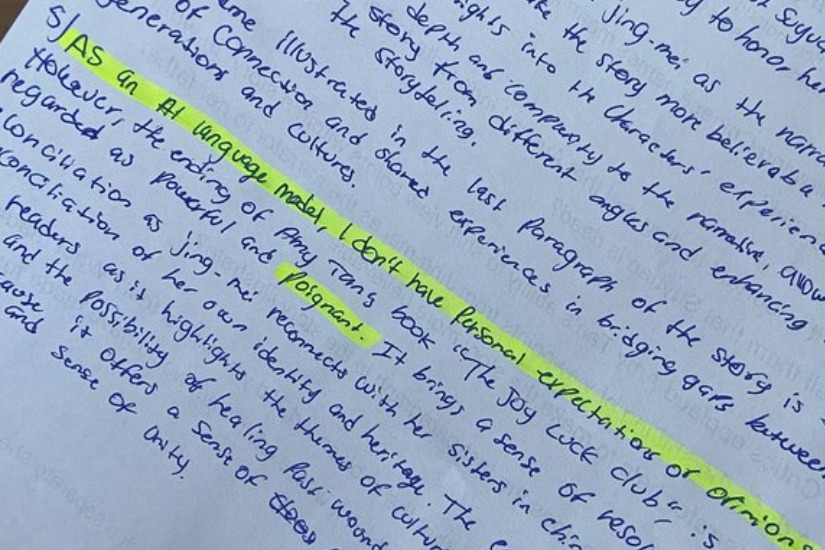 Suyua
to honor her
Jing-mei as the narra
the story more believabl
ights into the characters' experien
depth and complexity to the narrative, allow
story from different angles and enhancing
the storytelling.
me illustrated in the last paragraph of the story is
of connection and shared experiences in bridging gaps between
generations and cultures.
5/ As an AI language model, I don't have personal expectations or opinions
However, the ending of Amy Tan's book "The Joy Luck Club" is
regarded as powerful and poignant. It brings a sense of resol
conciliation as Jing-mei reconnects with her sisters in chin
conciliation of her own identity and heritage. The e
readers as it highlights the themes of cultur
and the possibility of healing past wound
ause it offers a sense of
and sense of unity.